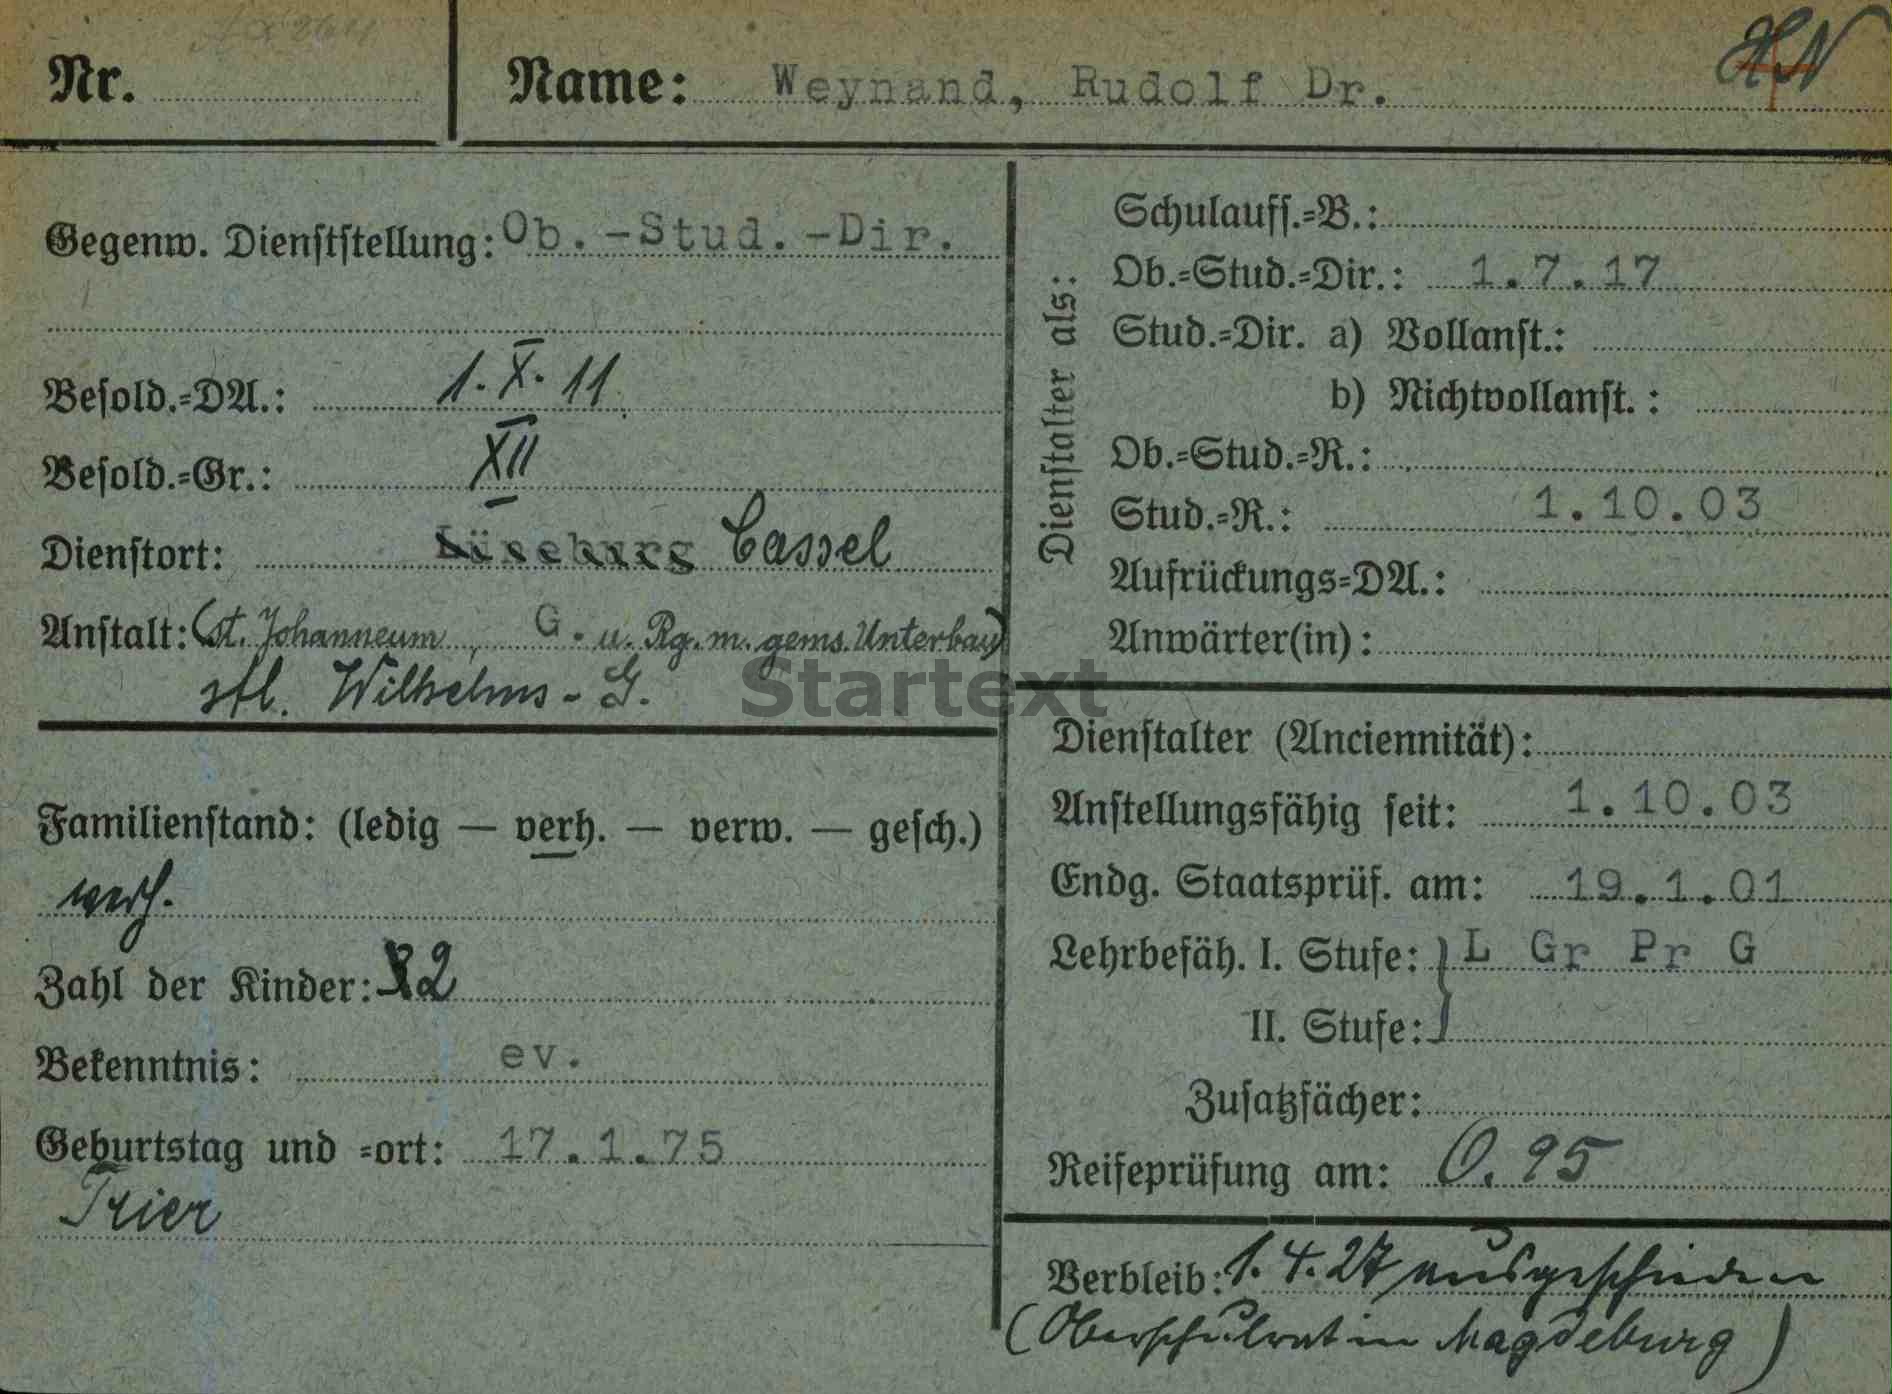 Nr.
Name: Weynand, Rudolf Dr.
Gegenw. Dienststellung: Ob.-Stud.-Dir.
Besold.=DA.: 1. X. 11
Besold.=Gr.: XII
Dienstort: Lüneburg Cassel
Anstalt: (St. Johanneum, G. u. Rg. m. gems. Unterbau)
stl. Wilhelms-G.
Familienstand: (ledig — verh. — verw. — gesch.)
verh.
Zahl der Kinder: 2
Bekenntnis: ev.
Geburtstag und =ort: 17.1.75
Trier
Dienstalter als:
Schulauff.=B.:
Ob.=Stud.=Dir.: 1.7.17
Stud.=Dir. a) Vollanst.:
b) Nichtvollanst.:
Ob.=Stud.=R.:
Stud.=R.: 1.10.03
Aufrückungs=DA.:
Anwärter(in):
Dienstalter (Anciennität):
Anstellungsfähig seit: 1.10.03
Endg. Staatsprüf. am: 19.1.01
Lehrbefäh. I. Stufe: L Gr Pr G
II. Stufe:
Zusatzfächer:
Reifeprüfung am: O. 95
Verbleib: 1. 4. 27 ausgeschieden
(Oberschulrat in Magdeburg)
Startext